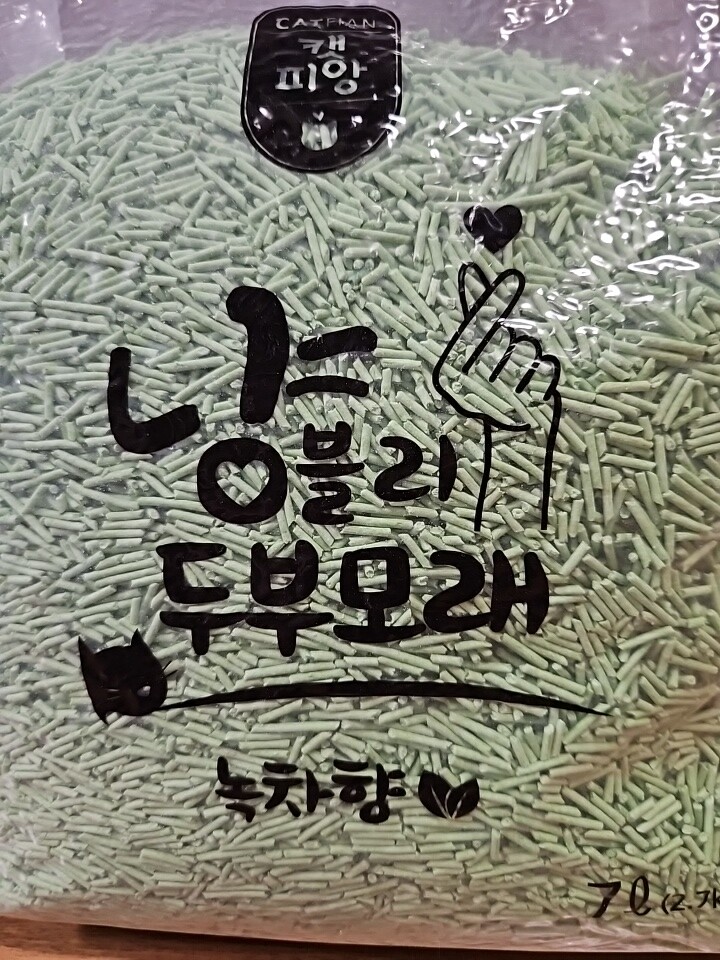 CATPIAN
캣
피앙
냥블리
두부모래
녹차향
7ℓ (2.7k